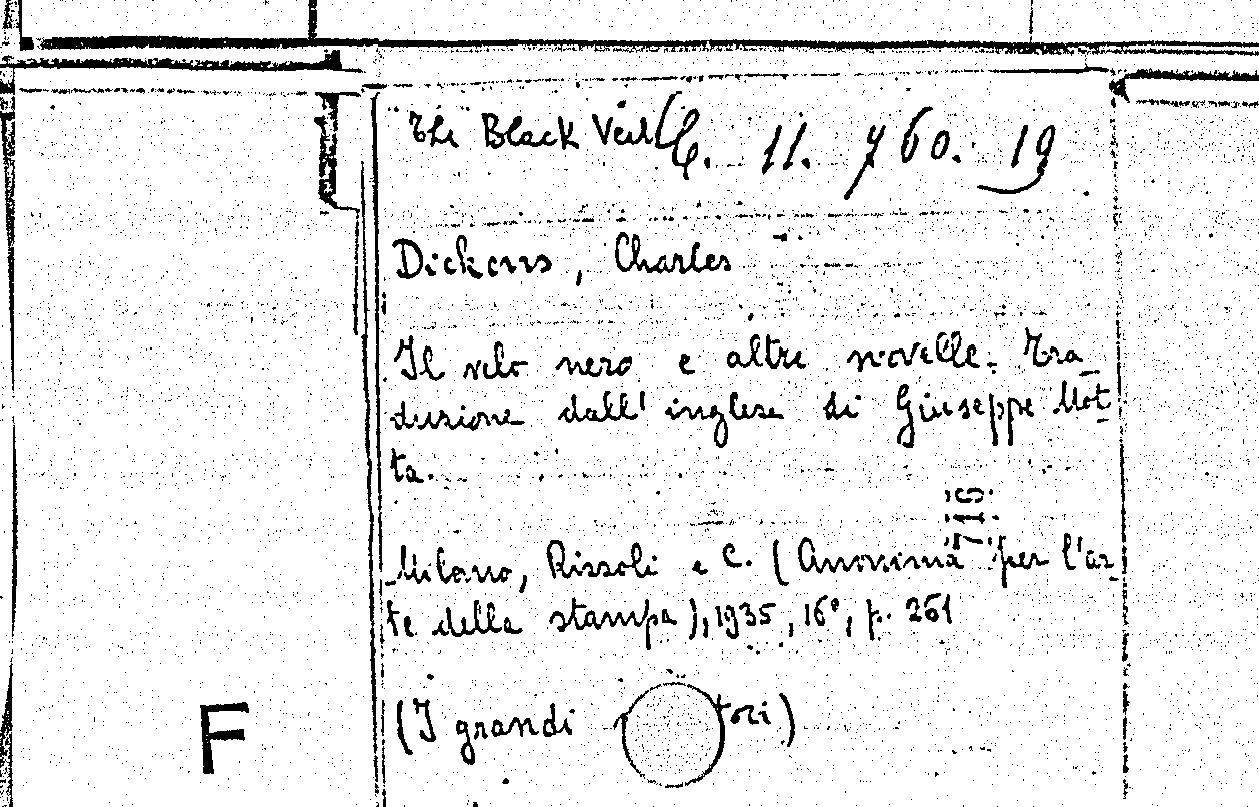 The Black Veil C. 11. 760. 19
Dickens, Charles
Il velo nero e altre novelle. Tra-
duzione dall'inglese di Giuseppe Mot-
ta.
716
Milano, Rizzoli e C. (Anonima per l'ar-
te della stampa), 1935, 16°, p. 261
(I grandi tori)
F